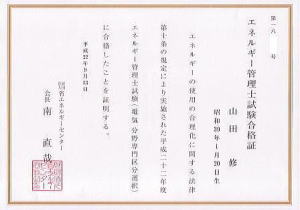 第一八 号
エネルギー管理士試験合格証
山田 修
昭和30年1月20日生
エネルギーの使用の合理化に関する法律
第十条の規定により実施された平成二十二年度
エネルギー管理士試験(電気分野専門区分選択)
に合格したことを証明する。
平成22年9月13日
省エネルギーセンター
会長 南 直哉